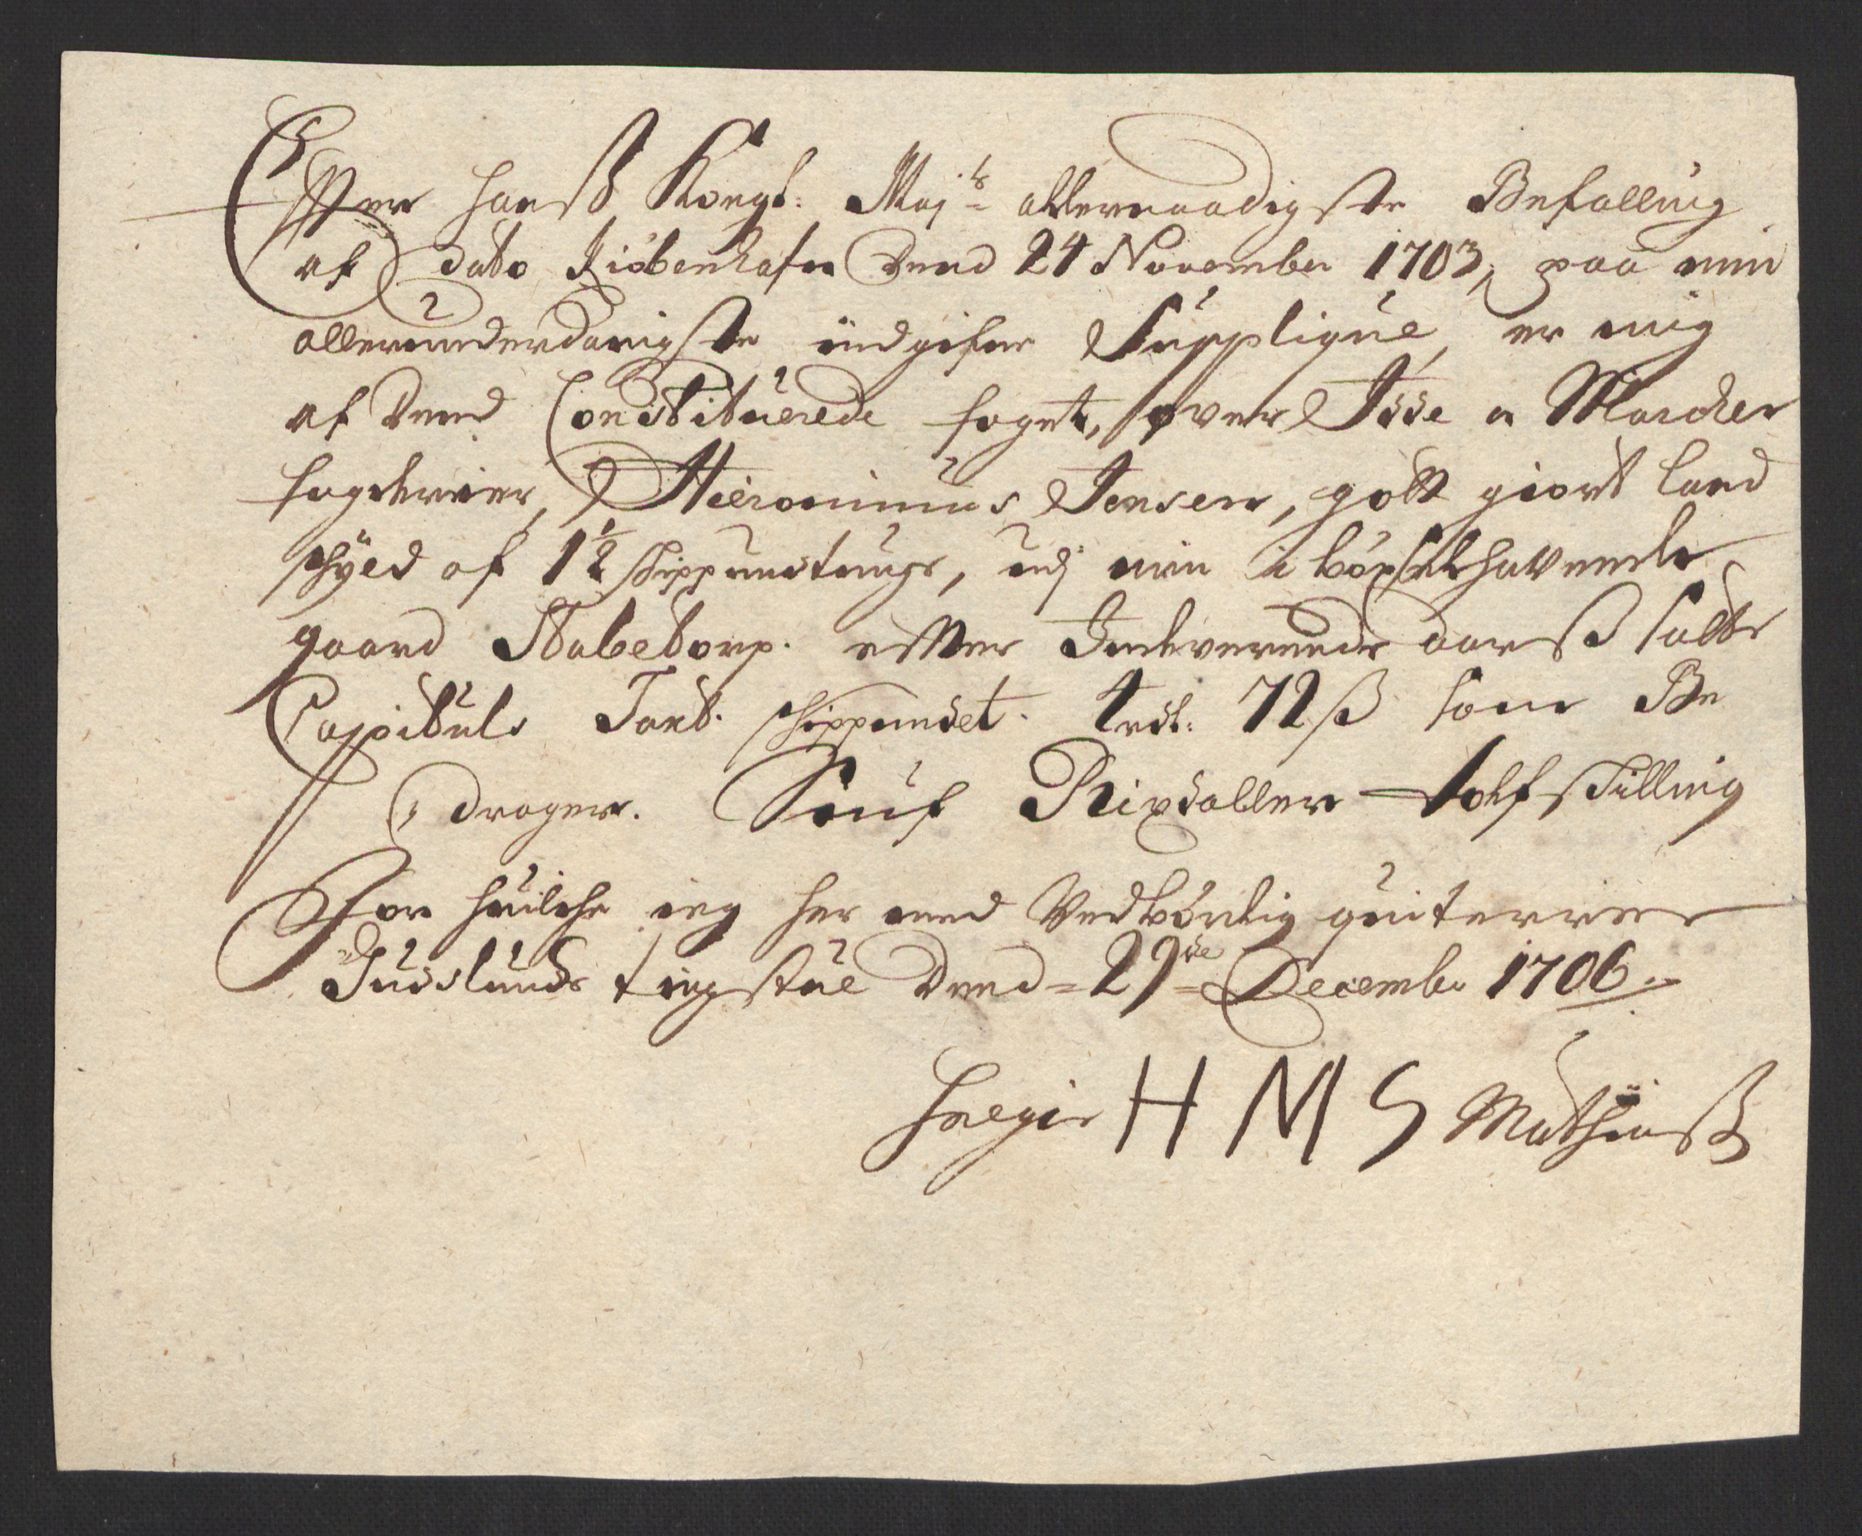 Effter Hanß Kongl: Maj:ts allernaadigste Befalling
af Dato Kiöbenhafn Dend 24 November 1703, paa min
allerunderdanigste indgifne Supplique, er mig
af Dend Constituerede foget, over Idde og Marcker
fogderier, Hieronimus Jensen, gott giort Land
schyld af 1½ Schippundtunge, udj min i böxelhavende
gaard Stabetorp. effter Indeverende aarß satte
Capituls Taxt. schippundet. 4 rdl: 72 ß som Be
drager. Siuf Rixdaller Tolf skilling
For huilche ieg her med Vedbörlig quiterer
Judslunds tingstue Dend 29de December 1706
Helgie H M S Mathiasß